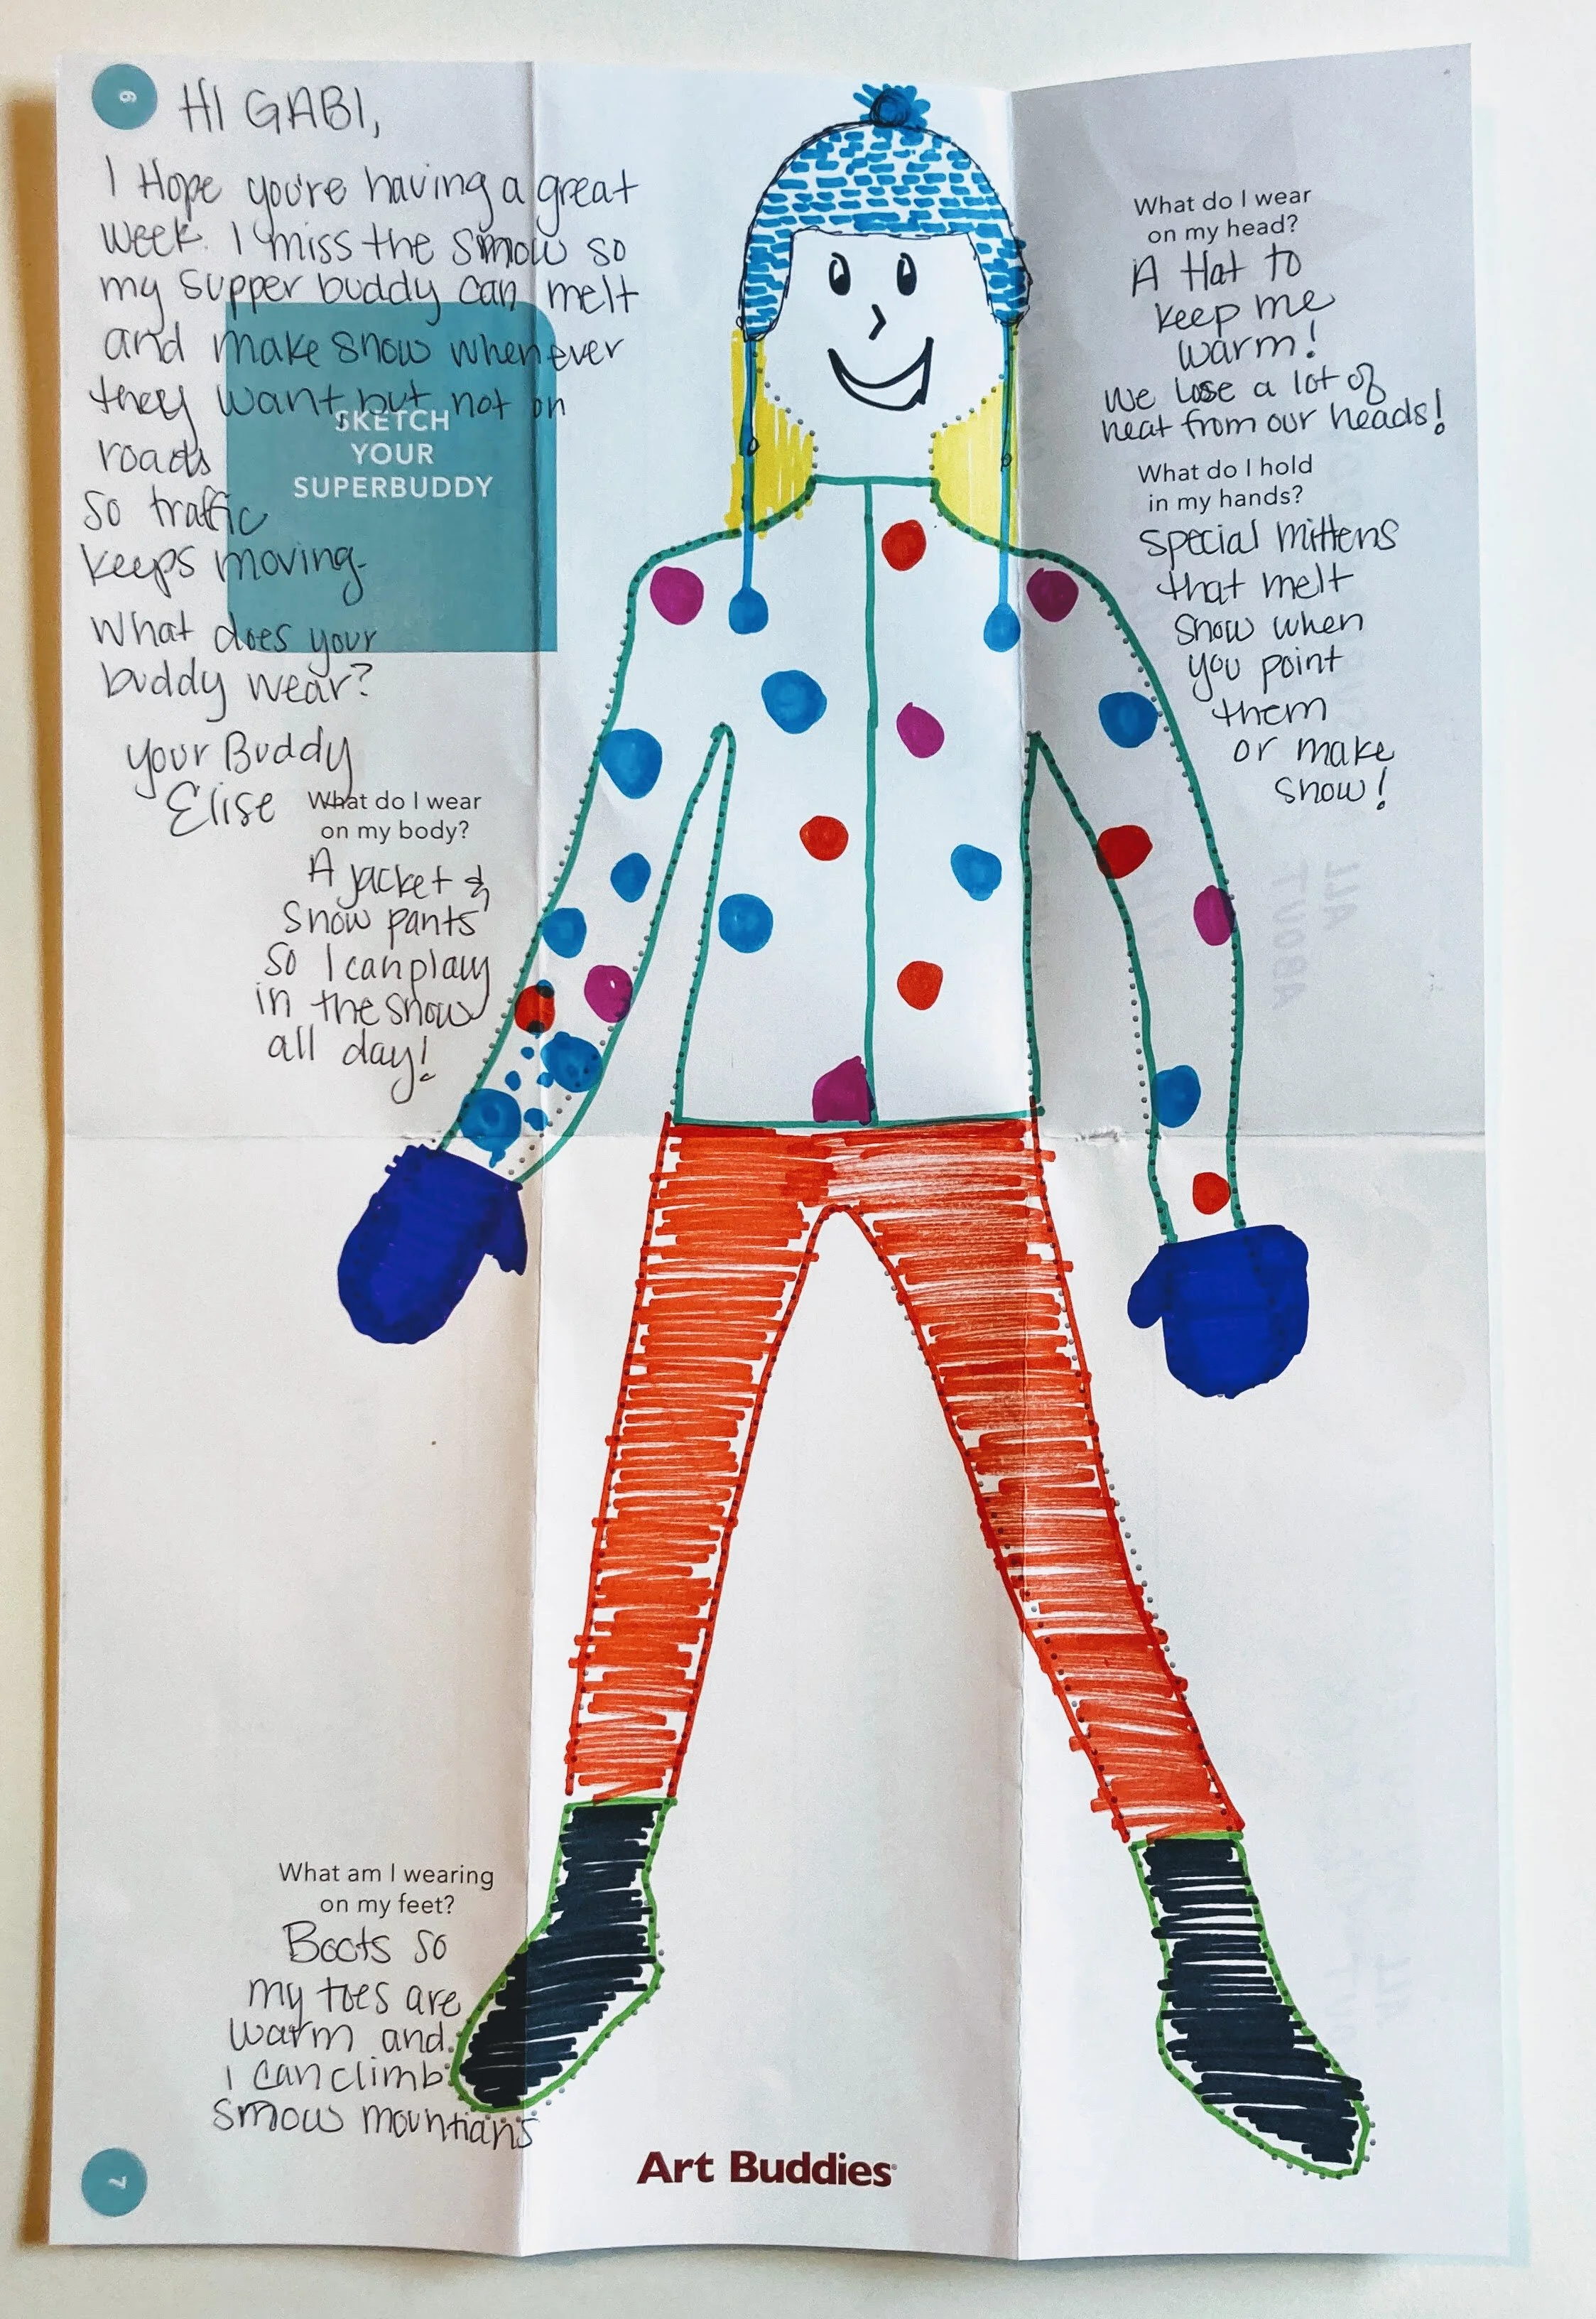 6
HI GABI,
I Hope you're having a great
week. I miss the snow so
my supper buddy can melt
and make snow whenever
they want but not on
roads
so traffic
keeps moving.
What does your
buddy wear?
your Buddy
Elise
SKETCH
YOUR
SUPERBUDDY
What do I wear
on my body?
A jacket &
snow pants
so I can play
in the snow
all day!
What do I wear
on my head?
A Hat to
keep me
warm!
We lose a lot of
heat from our heads!
What do I hold
in my hands?
special mittens
that melt
snow when
you point
them
or make
snow!
What am I wearing
on my feet?
Boots so
my toes are
warm and
I can climb
snow mountians
7
Art Buddies